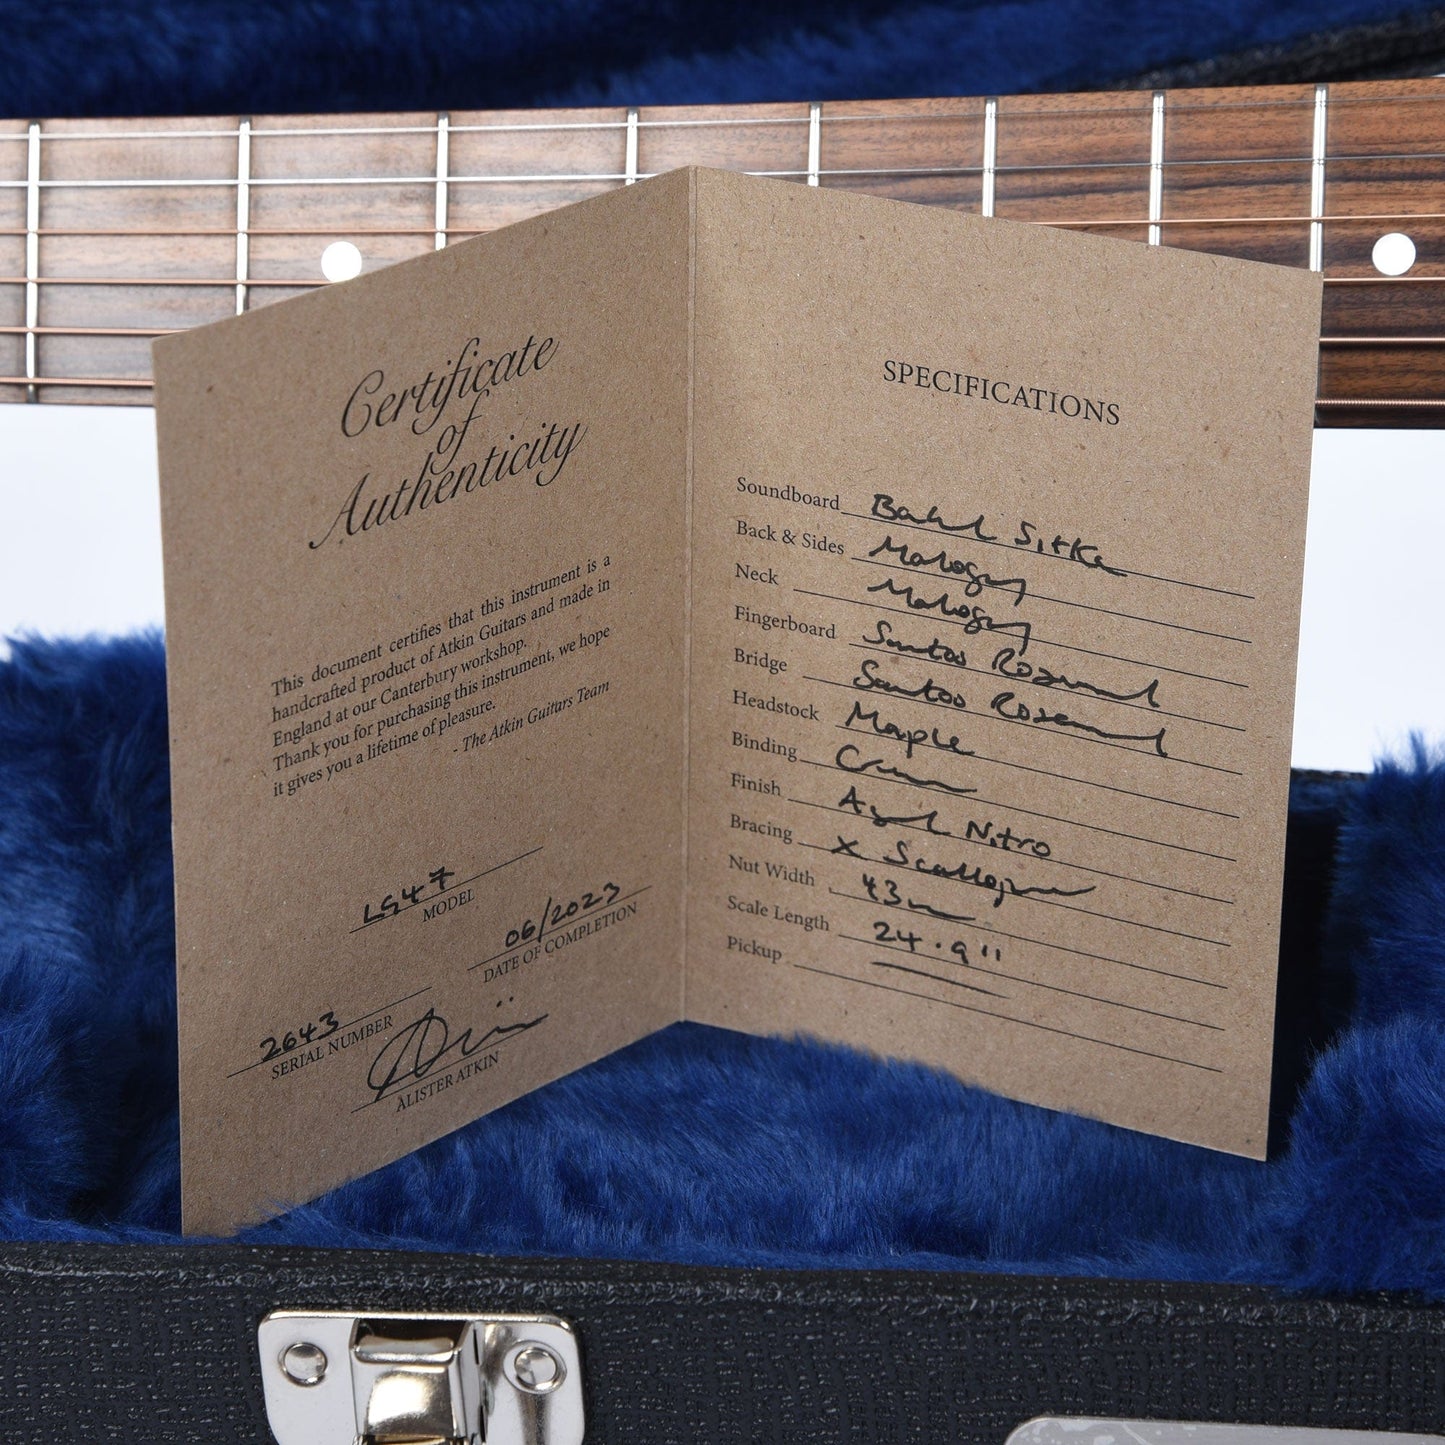 Certificate
of
Authenticity
This document certifies that this instrument is a
handcrafted product of Atkin Guitars and made in
England at our Canterbury workshop.
Thank you for purchasing this instrument, we hope
it gives you a lifetime of pleasure.
- The Atkin Guitars Team
LG47
MODEL
06/2023
DATE OF COMPLETION
2643
SERIAL NUMBER
ALISTER ATKIN
SPECIFICATIONS
Soundboard Baked Sitka
Back & Sides Mahogany
Neck Mahogany
Fingerboard Santos Rosewood
Bridge Santos Rosewood
Headstock Maple
Binding Cream
Finish Aged Nitro
Bracing X Scalloped
Nut Width 43mm
Scale Length 24.9"
Pickup